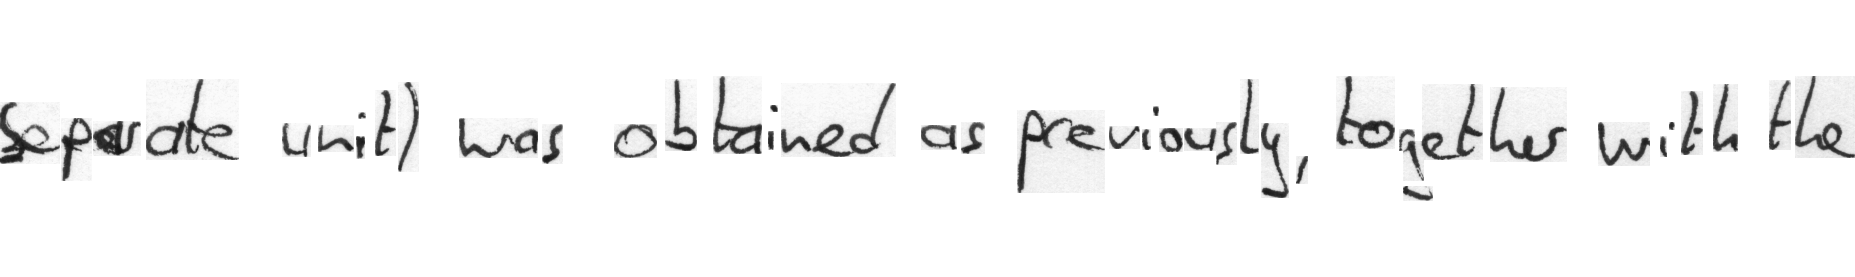 separate unit) was obtained as previously, together with the